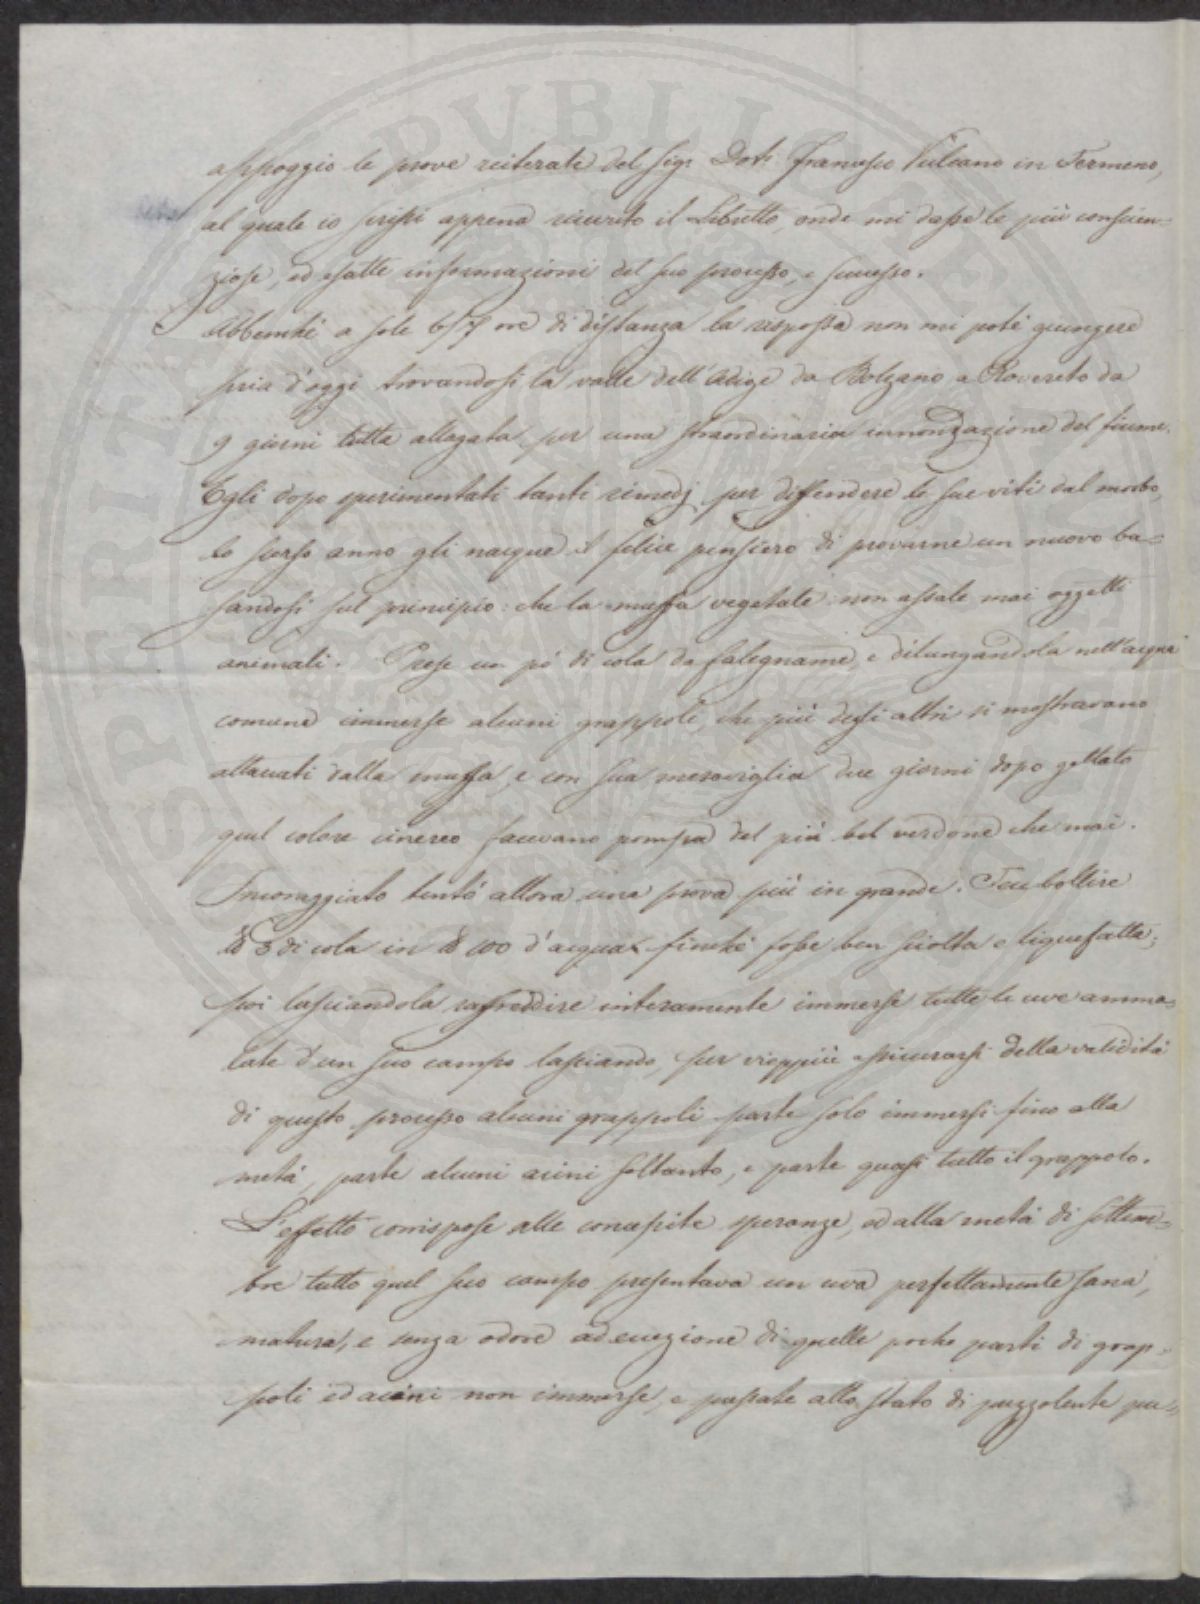 appoggio le prove reiterate del Sigr Dotr Francesco Vulcano in Termeno,
al quale io scrissi appena ricevuto il Libretto, onde mi dasse le più conscien=
ziose, ed esatte informazioni del suo processo, e successo.
Abbenché a sole 6/7 ore di distanza la risposta non mi poté giungere
pria d'oggi trovandosi la valle dell'Adige da Bolzano a Rovereto da
9 giorni tutta allagata per una straordinaria innondazione del fiume.
Egli dopo sperimentati tanti rimedj per diffendere le sue viti dal morbo,
lo scorso anno gli nacque il felice pensiero di provarne un nuovo ba=
sandosi sul principio: che la muffa vegetale non assale mai oggetti
animali. Prese un pó di cola da falegname, e dilungandola nell'acqua
comune immerse alcuni grappoli, che più degli altri si mostravano
attaccati dalla muffa, e con sua meraviglia due giorni dopo gettato
quel colore cinereo facevano pompa del più bel verdone che mai.
Incoraggiato tentò allora una prova più in grande. Fece bollire
℔ 3 di cola in ℔ 100 d'acqua finché fosse ben sciolta e liquefatta;
poi lasciandola raffreddire interamente immerse tutte le uve amma=
late d'un suo campo lasciando, per vieppiù assicurarsi della validità
di questo processo alcuni grappoli parte solo immersi fino alla
metà, parte alcuni acini soltanto, e parte quasi tutto il grappolo.
L'effetto corrispose alle concepite speranze, ed alla metà di Settem=
bre tutto quel suo campo presentava un uva perfettamente sana,
matura, e senza odore ad eccezione di quelle poche parti di grap=
poli ed acini non immerse, e passate allo stato di puzzolente pu=